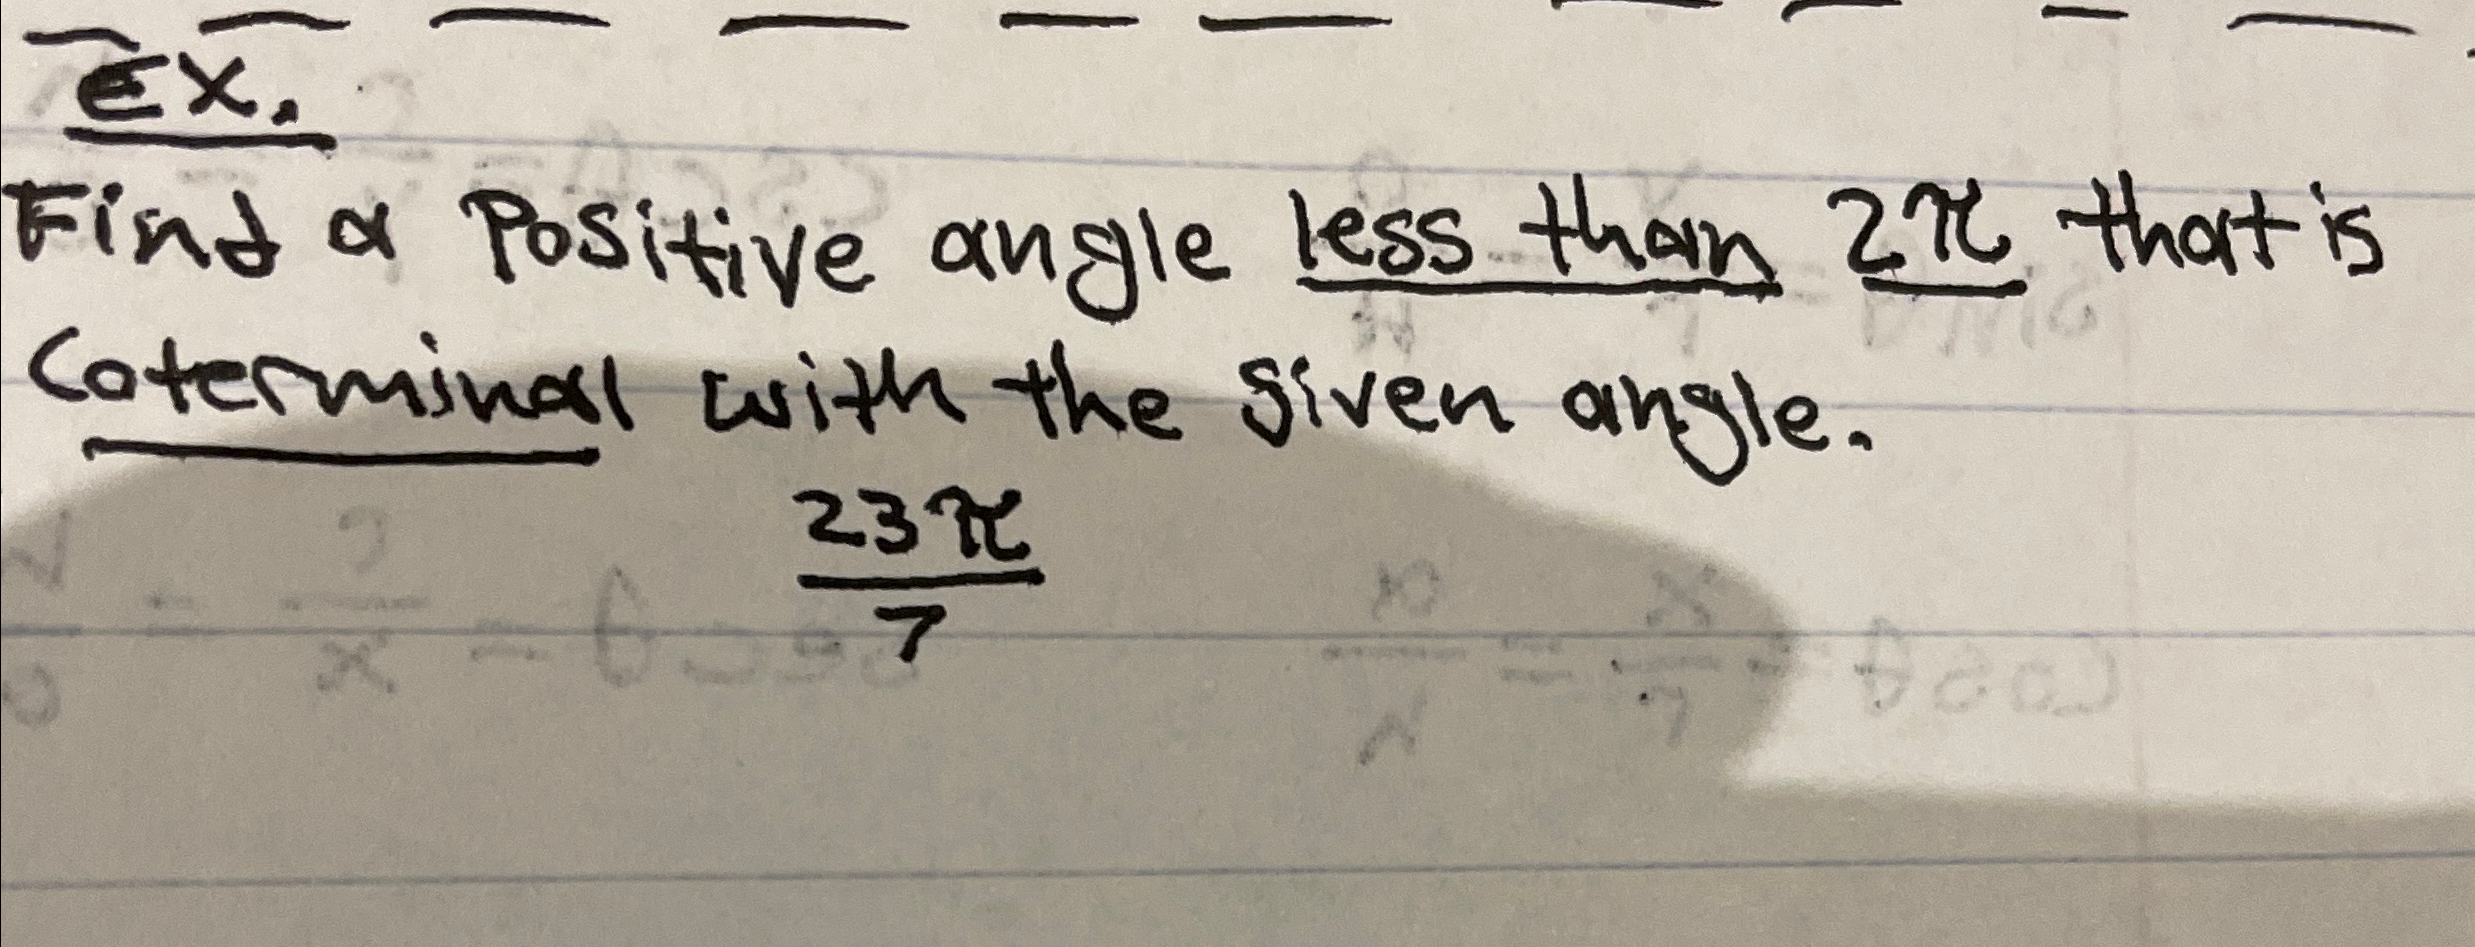 Ex.
Find a Positive angle less than 2π that is
Coterminal with the given angle.
23π
7